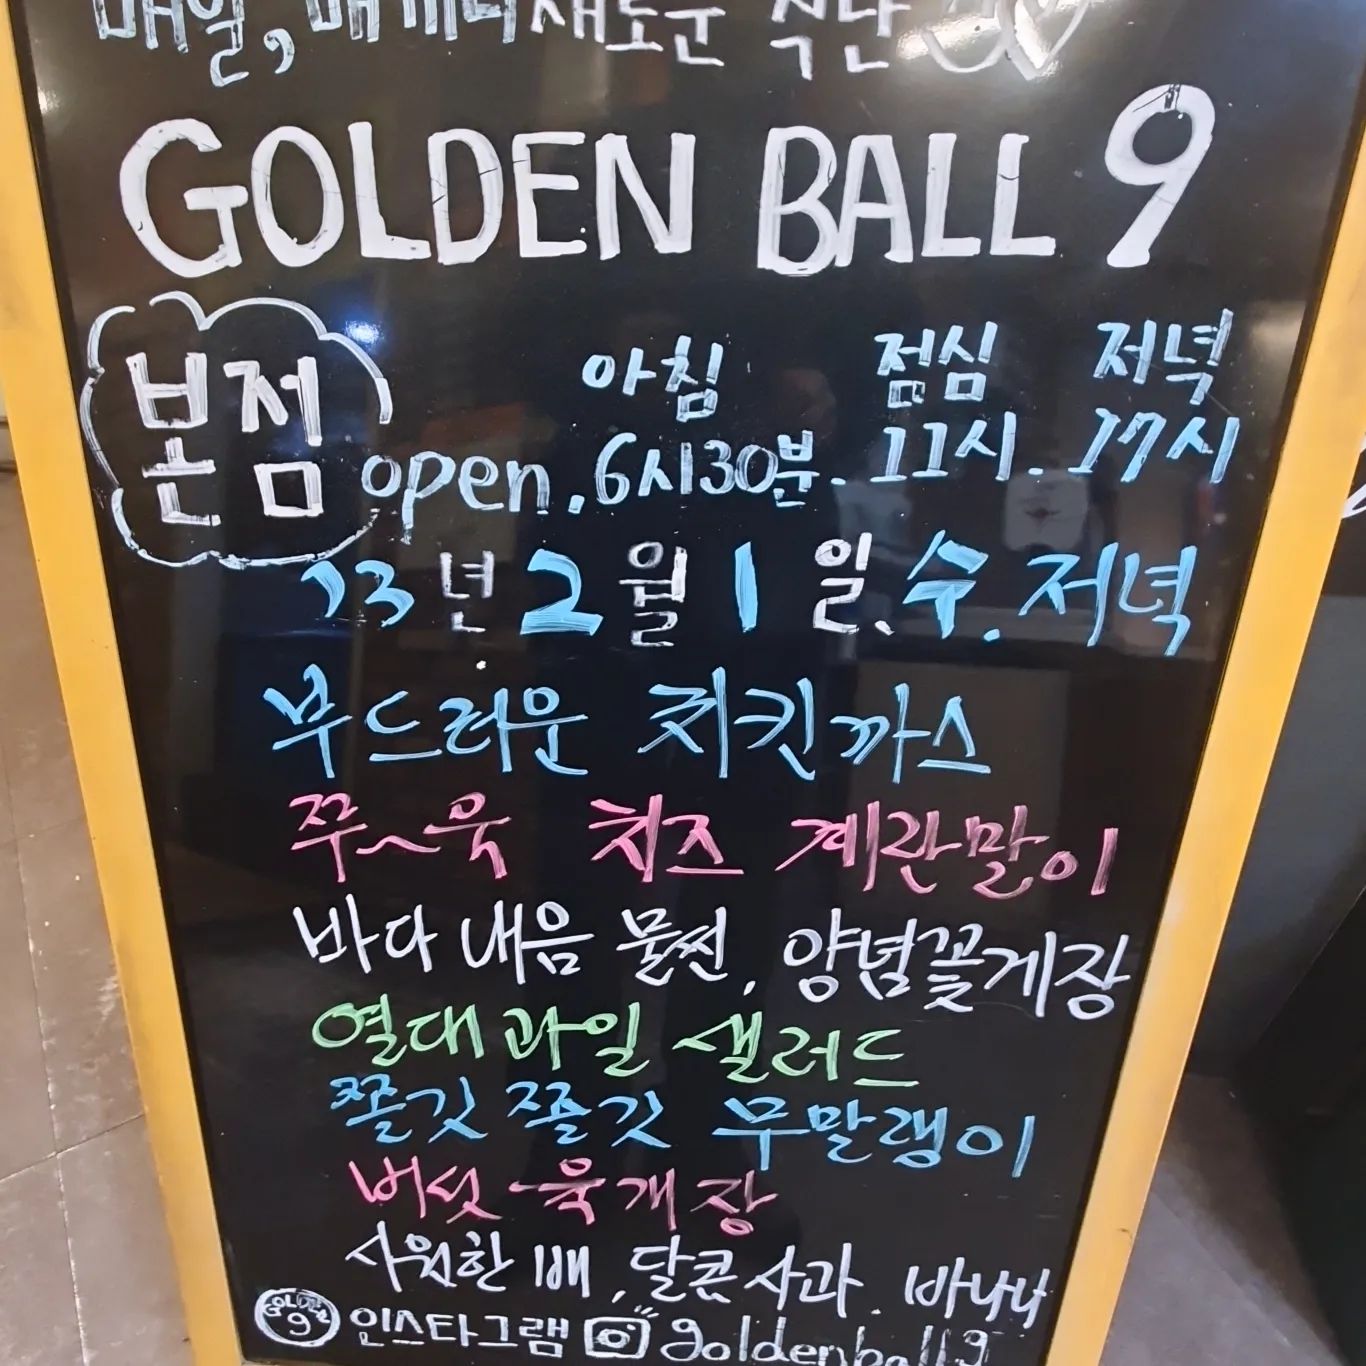 매일, 매끼니 새로운 식단
GOLDEN BALL 9
본점
아침 점심 저녁
open. 6시30분. 11시. 17시
23년 2월 1일. 수. 저녁
부드러운 치킨까스
쭈~욱 치즈 계란말이
바다 내음 물씬, 양념꽃게장
열대과일 샐러드
쫄깃 쫄깃 무말랭이
버섯 육개장
시원한 배, 달콤 사과. 바나나
GOLDEN 9 인스타그램 goldenball9